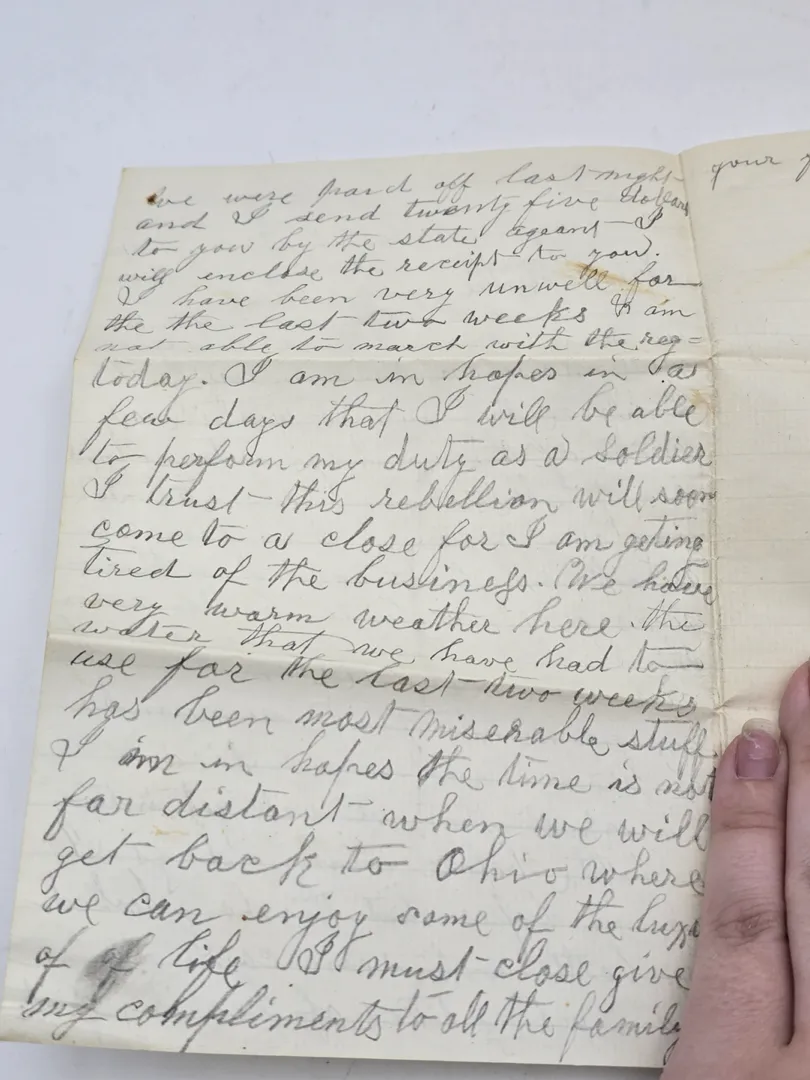 We were paid off last night
and I send twenty five dollars
to you by the state ageant I
will enclose the receipt to you.
I have been very unwell for
the the last two weeks I am
not able to march with the reg=
today. I am in hopes in a
few days that I will be able
to perform my duty as a soldier
I trust this rebellion will soon
come to a close for I am geting
tired of the business. We have
very warm weather here. the
water that we have had to
use for the last two weeks
has been most miserable stuff.
I am in hopes the time is not
far distant when we will
get back to Ohio where
we can enjoy some of the
of of life I must close give
my compliments to all the family
your